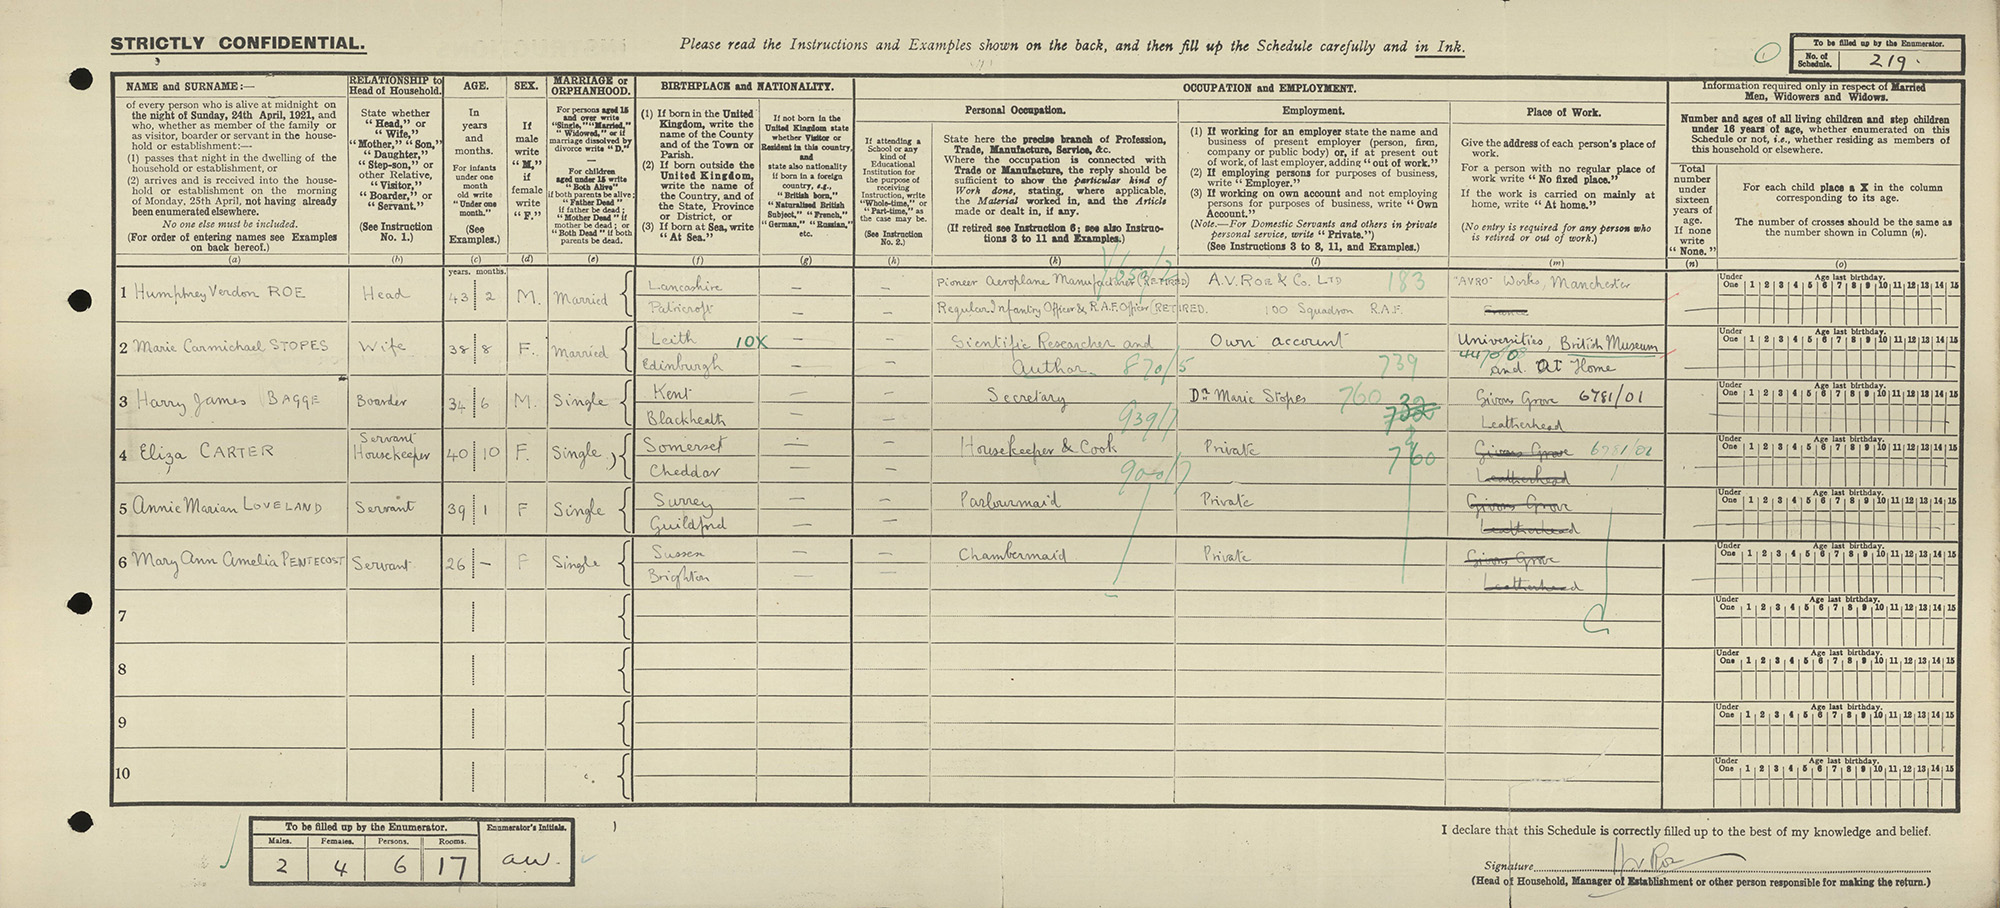 STRICTLY CONFIDENTIAL.
Please read the Instructions and Examples shown on the back, and then fill up the Schedule carefully and in Ink.
To be filled up by the Enumerator.
No. of Schedule. 219.
NAME and SURNAME:—
of every person who is alive at midnight on
the night of Sunday, 24th April, 1921, and
who, whether as member of the family or
as visitor, boarder or servant in the house-
hold or establishment:—
(1) passes that night in the dwelling of the
household or establishment, or
(2) arrives and is received into the house-
hold or establishment on the morning
of Monday, 25th April, not having already
been enumerated elsewhere.
No one else must be included.
(For order of entering names see Examples
on back hereof.)
(a)
RELATIONSHIP to
Head of Household.
State whether
"Head," or
"Wife,"
"Mother," "Son,"
"Daughter,"
"Step-son," or
other Relative,
"Visitor,"
"Boarder," or
"Servant."
(See Instruction
No. 1.)
(b)
AGE.
In
years
and
months.
For infants
under one
month
old write
"Under one
month."
(See
Examples.)
(c)
years. months.
SEX.
If
male
write
"M.,"
if
female
write
"F."
(d)
MARRIAGE or
ORPHANHOOD.
For persons aged 15
and over write
"Single," "Married,"
"Widowed," or if
marriage dissolved by
divorce write "D."
—
For children
aged under 15 write
"Both Alive"
if both parents be alive;
"Father Dead"
if father be dead;
"Mother Dead" if
mother be dead; or
"Both Dead" if both
parents be dead.
(e)
BIRTHPLACE and NATIONALITY.
(1) If born in the United
Kingdom, write the
name of the County
and of the Town or
Parish.
(2) If born outside the
United Kingdom,
write the name of
the Country, and of
the State, Province
or District, or
(3) If born at Sea, write
"At Sea."
(f)
If not born in the
United Kingdom state
whether Visitor or
Resident in this country,
and
state also nationality
if born in a foreign
country, e.g.,
"British born,"
"Naturalised British
Subject," "French,"
"German," "Russian,"
etc.
(g)
OCCUPATION AND EMPLOYMENT.
If attending a
School or any
kind of
Educational
Institution for the
purpose of
receiving
Instruction, write
"Whole-time," or
"Part-time," as
the case may be.
(See Instruction
No. 2.)
(h)
Personal Occupation.
State here the precise branch of Profession,
Trade, Manufacture, Service, &c.
Where the occupation is connected with
Trade or Manufacture, the reply should be
sufficient to show the particular kind of
Work done, stating, where applicable,
the Material worked in, and the Article
made or dealt in, if any.
(If retired see Instruction 6; see also Instruc-
tions 3 to 11 and Examples.)
(k)
Employment.
(1) If working for an employer state the name and
business of present employer (person, firm,
company or public body) or, if at present out
of work, of last employer, adding "out of work."
(2) If employing persons for purposes of business,
write "Employer."
(3) If working on own account and not employing
persons for purposes of business, write "Own
Account."
(Note.—For Domestic Servants and others in private
personal service, write "Private.")
(See Instructions 3 to 8, 11, and Examples.)
(l)
Place of Work.
Give the address of each person's place of
work.
For a person with no regular place of
work write "No fixed place."
If the work is carried on mainly at
home, write "At home."
(No entry is required for any person who
is retired or out of work.)
(m)
Information required only in respect of Married
Men, Widowers and Widows.
Number and ages of all living children and step children
under 16 years of age, whether enumerated on this
Schedule or not, i.e., whether residing as members of
this household or elsewhere.
Total
number
under
sixteen
years of
age.
If none
write
"None."
(n)
For each child place a X in the column
corresponding to its age.
The number of crosses should be the same as
the number shown in Column (n).
(o)
1 Humphrey Verdon ROE Head 43 2 M. Married Lancashire — — Pioneer Aeroplane Manufacturer (RETIRED) A.V. ROE & Co. LTD 183 "AVRO" Works, Manchester
Patricroft — — Regular Infantry Officer & R.A.F. Officer (RETIRED. 100 Squadron R.A.F. France
Under One 1 2 3 4 5 6 7 8 9 10 11 12 13 14 15
Age last birthday.
2 Marie Carmichael STOPES Wife 38 8 F. Married Leith 10X — — Scientific Researcher and Own account Universities, British Museum
Edinburgh — — Author 870/5 739 and. at Home
Under One 1 2 3 4 5 6 7 8 9 10 11 12 13 14 15
Age last birthday.
3 Harry James BAGGE Boarder 34 6 M. Single Kent — — Secretary Dr Marie Stopes 760 Givons Grove 6781/01
Blackheath — — 939/7 Leatherhead
Under One 1 2 3 4 5 6 7 8 9 10 11 12 13 14 15
Age last birthday.
4 Eliza CARTER Servant Housekeeper 40 10 F. Single Somerset — — Housekeeper & Cook Private Givons Grove 6781/01
Cheddar — — 900/7 760 Leatherhead
Under One 1 2 3 4 5 6 7 8 9 10 11 12 13 14 15
Age last birthday.
5 Annie Marian LOVELAND Servant 39 1 F Single Surrey — — Parlourmaid Private Givons Grove
Guildford — — Leatherhead
Under One 1 2 3 4 5 6 7 8 9 10 11 12 13 14 15
Age last birthday.
6 Mary Ann Amelia PENTECOST Servant 26 — F Single Sussex — — Chambermaid Private Givons Grove
Brighton — — Leatherhead
Under One 1 2 3 4 5 6 7 8 9 10 11 12 13 14 15
Age last birthday.
7
Under One 1 2 3 4 5 6 7 8 9 10 11 12 13 14 15
Age last birthday.
8
Under One 1 2 3 4 5 6 7 8 9 10 11 12 13 14 15
Age last birthday.
9
Under One 1 2 3 4 5 6 7 8 9 10 11 12 13 14 15
Age last birthday.
10
Under One 1 2 3 4 5 6 7 8 9 10 11 12 13 14 15
Age last birthday.
To be filled up by the Enumerator.
Males. Females. Persons. Rooms.
2 4 6 17
Enumerator's Initials.
aw.
I declare that this Schedule is correctly filled up to the best of my knowledge and belief.
Signature
(Head of Household, Manager of Establishment or other person responsible for making the return.)